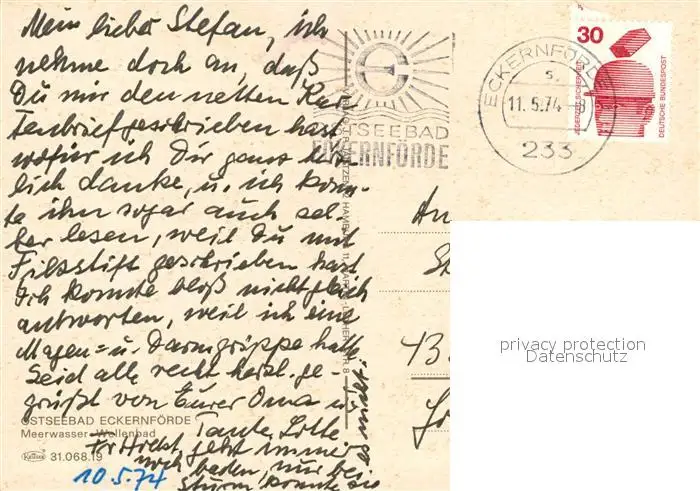 Mein lieber Stefan, ich
nehme doch an, daß
Du mir den netten Kar
tenbrief geschrieben hast
wofür ich Dir ganz herz
lich danke, u. ich konn-
te ihn sogar auch sel-
ber lesen, weil Du mit
Filzstift geschrieben hast
Ich konnte bloß nicht gleich
antworten, weil ich eine
Magen= u. Darmgrippe hatte.
Seid alle recht herzl. ge-
grüßt von Eurer Oma u.
Tante Lotte
Fr Horst. geht immer
noch baden, nur bei
Sturm konnte sie
es nicht.
OSTSEEBAD ECKERNFÖRDE
Meerwasser-Wellenbad
Krüger 31.068.19
10.5.74
OSTSEEBAD
ECKERNFÖRDE
ECKERNFÖRDE
11.5.74-8
233
30
JEDERZEIT SICHERHEIT
DEUTSCHE BUNDESPOST
An
43
privacy protection
Datenschutz